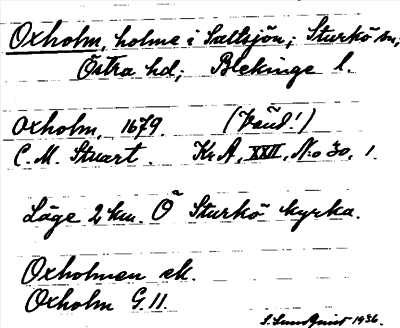 Oxholm, holme i Saltsjön; Sturkö sn;
Östra hd; Blekinge l.
Oxholm, 1679. (Vaud!)
C. M. Stuart. Kr A, XXII, No 30, 1.
Läge 2 km. Ö Sturkö kyrka.
Oxholmen ek.
Oxholm G 11.
S. Lundquist 1936.